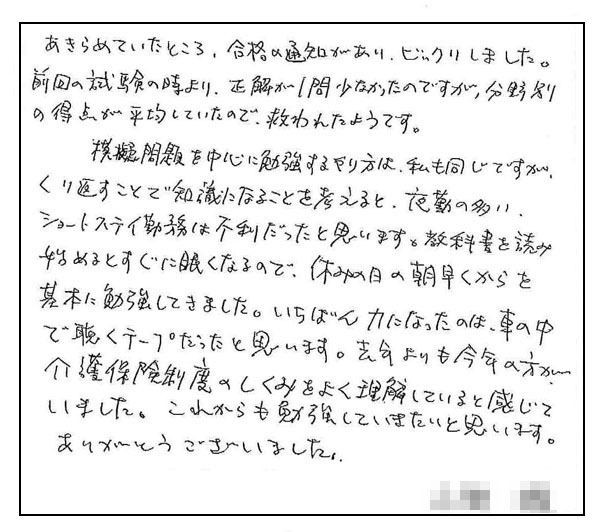 あきらめていたところ、合格の通知があり、ビックリしました。
前回の試験の時より、正解が1問少なかったのですが、分野別
の得点が平均していたので、救われたようです。
模擬問題を中心に勉強するやり方は、私も同じですが、
くり返すことで知識になることを考えると、夜勤の多い、
ショートステイ勤務は不利だったと思います。教科書を読み
始めるとすぐに眠くなるので、休みの日の朝早くからを
基本に勉強してきました。いちばん力になったのは、車の中
で聴くテープだったと思います。去年よりも今年の方が、
介護保険制度のしくみをよく理解していると感じて
いました。これからも勉強していきたいと思います。
ありがとうございました。